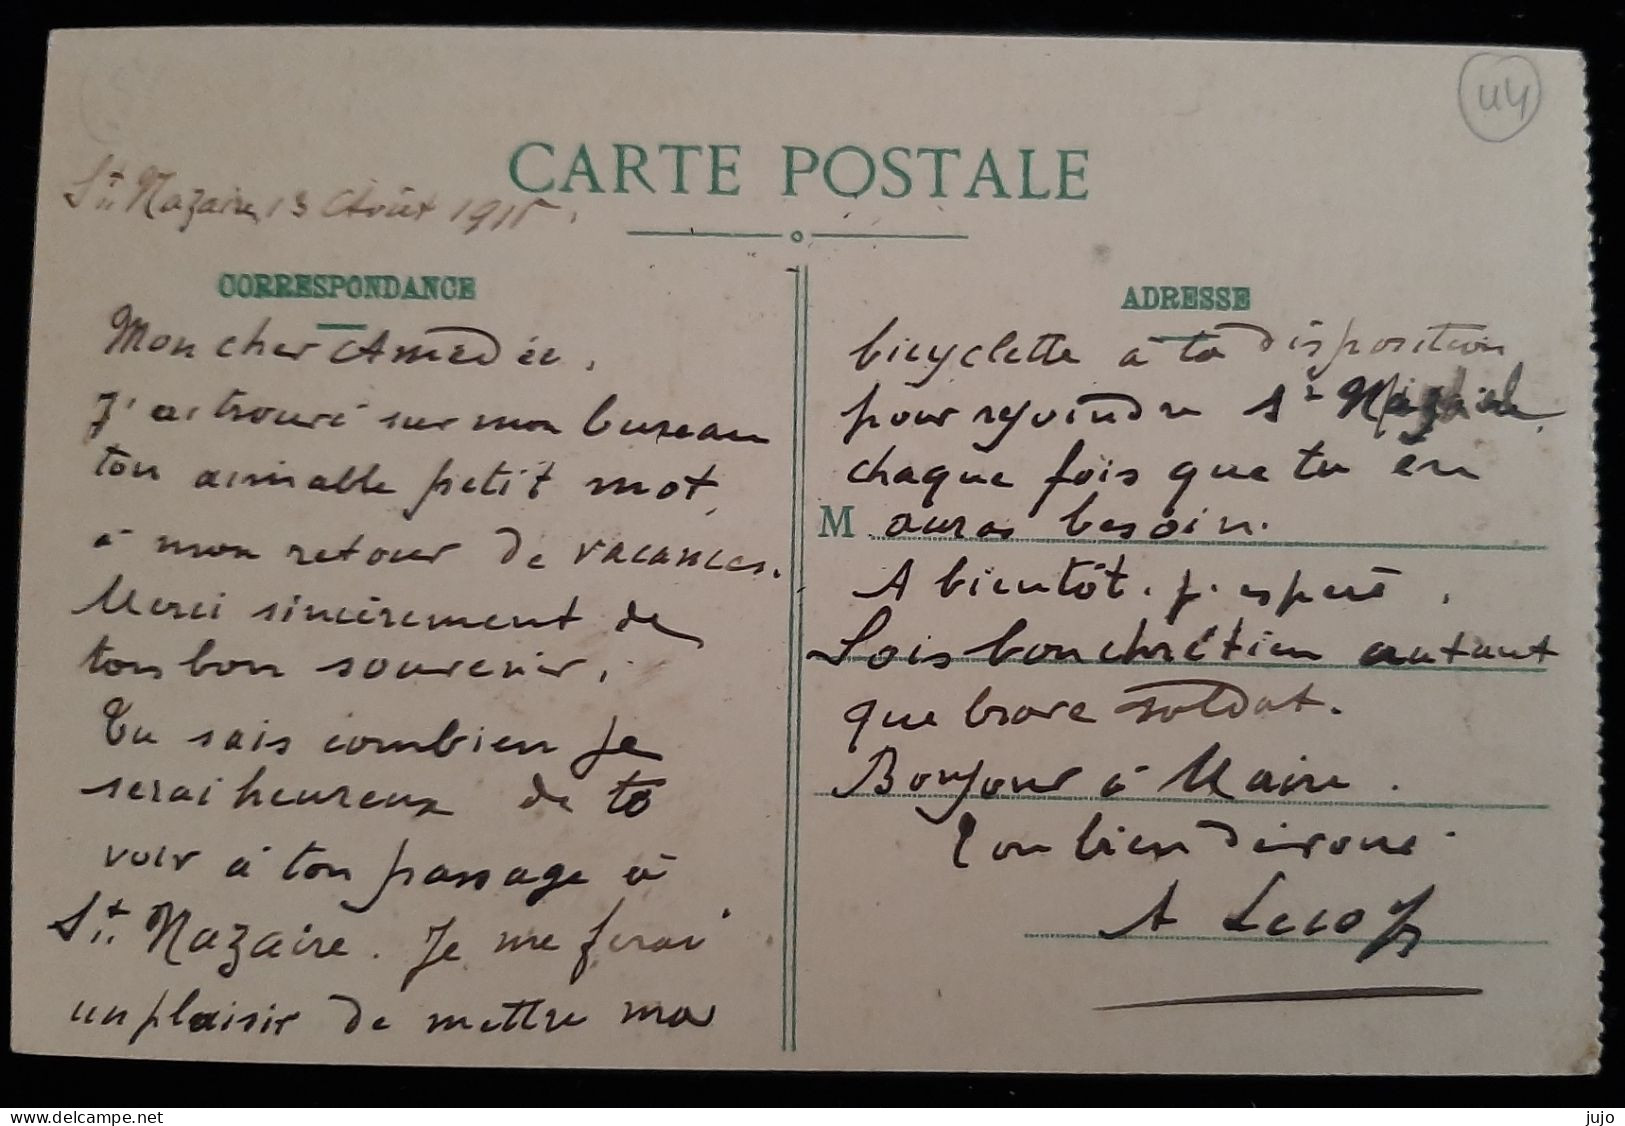 44
CARTE POSTALE
St Nazaire, 13 Août 1915.
CORRESPONDANCE
Mon cher Amédée,
J'ai trouvé sur mon bureau
ton aimable petit mot,
à mon retour de vacances.
Merci sincèrement de
ton bon souvenir.
Tu sais combien je
serai heureux de te
voir à ton passage à
St Nazaire. Je me ferai
un plaisir de mettre ma
ADRESSE
bicyclette à ta disposition
pour rejoindre St Nazaire,
chaque fois que tu en
M auras besoin.
A bientôt, j'espère.
Sois bon chrétien autant
que brave soldat.
Bonjour à Maire.
Ton bien dévoué
A Lecoq
delcampe.net
jujo